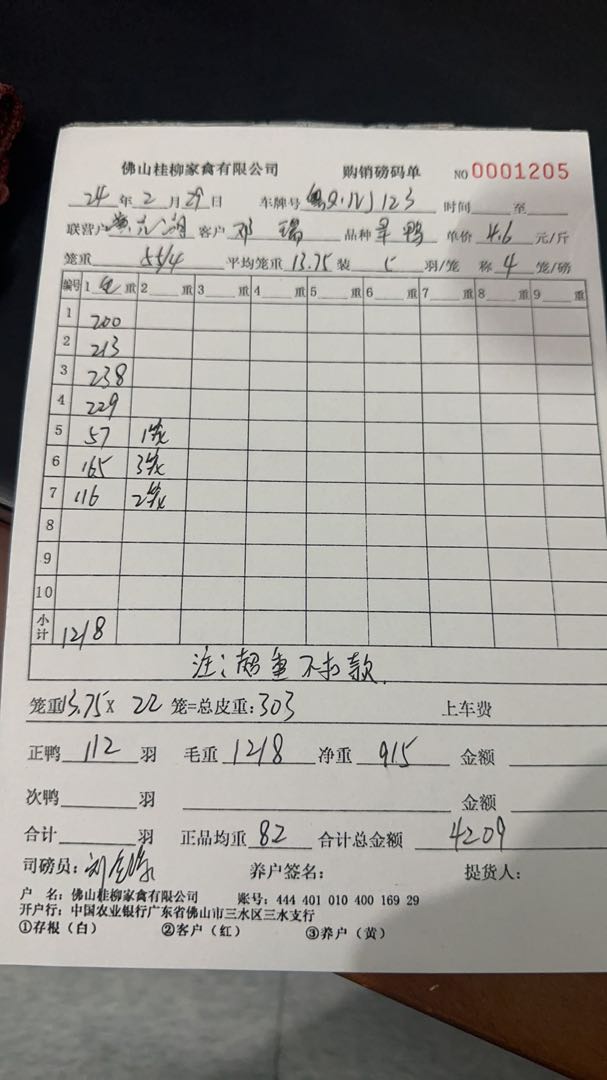 佛山桂柳家禽有限公司 购销磅码单 NO 0001205
24 年 2 月 29 日 车牌号 123 时间 至
联营户 客户 邓 瑞 品种 鸭 单价 4.6 元/斤
笼重 55/4 平均笼重 13.75 装 5 羽/笼 称 4 笼/磅
编号 1 重 2 重 3 重 4 重 5 重 6 重 7 重 8 重 9 重
1 200
2 213
3 238
4 229
5 57 1笼
6 165 3笼
7 116 2笼
8
9
10
小计 1218
注：超重不扣款
笼重 13.75 X 22 笼=总皮重: 303 上车费
正鸭 112 羽 毛重 1218 净重 915 金额
次鸭 羽 金额
合计 羽 正品均重 82 合计总金额 4209
司磅员: 刘 养户签名: 提货人:
户 名: 佛山桂柳家禽有限公司 账号: 444 401 010 400 169 29
开户行: 中国农业银行广东省佛山市三水区三水支行
①存根（白） ②客户（红） ③养户（黄）